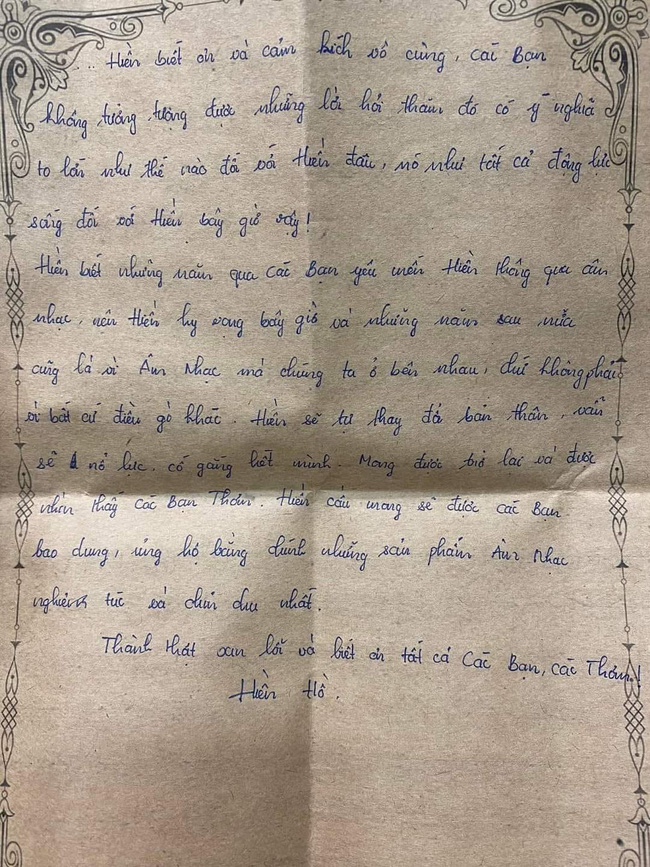 ... Hiền biết ơn và cảm kích vô cùng, Các Bạn
không tưởng tượng được những lời hỏi thăm đó có ý nghĩa
to lớn như thế nào đối với Hiền đâu, nó như tất cả động lực
sống đối với Hiền bây giờ vậy!
Hiền biết những năm qua Các Bạn yêu mến Hiền thông qua âm
nhạc, nên Hiền hy vọng bây giờ và những năm sau nữa
cũng là vì Âm Nhạc mà chúng ta ở bên nhau, chứ không phải
vì bất cứ điều gì khác. Hiền sẽ tự thay đổi bản thân, vẫn
sẽ nổ lực, cố gắng hết mình. Mong được trở lại và được
nhìn thấy Các Bạn Thơm. Hiền cầu mong sẽ được Các Bạn
bao dung, ủng hộ bằng chính những sản phẩm Âm Nhạc
nghiêm túc và chỉn chu nhất.
Thành thật xin lỗi và biết ơn tất cả Các Bạn, các Thơm!
Hiền Hồ.